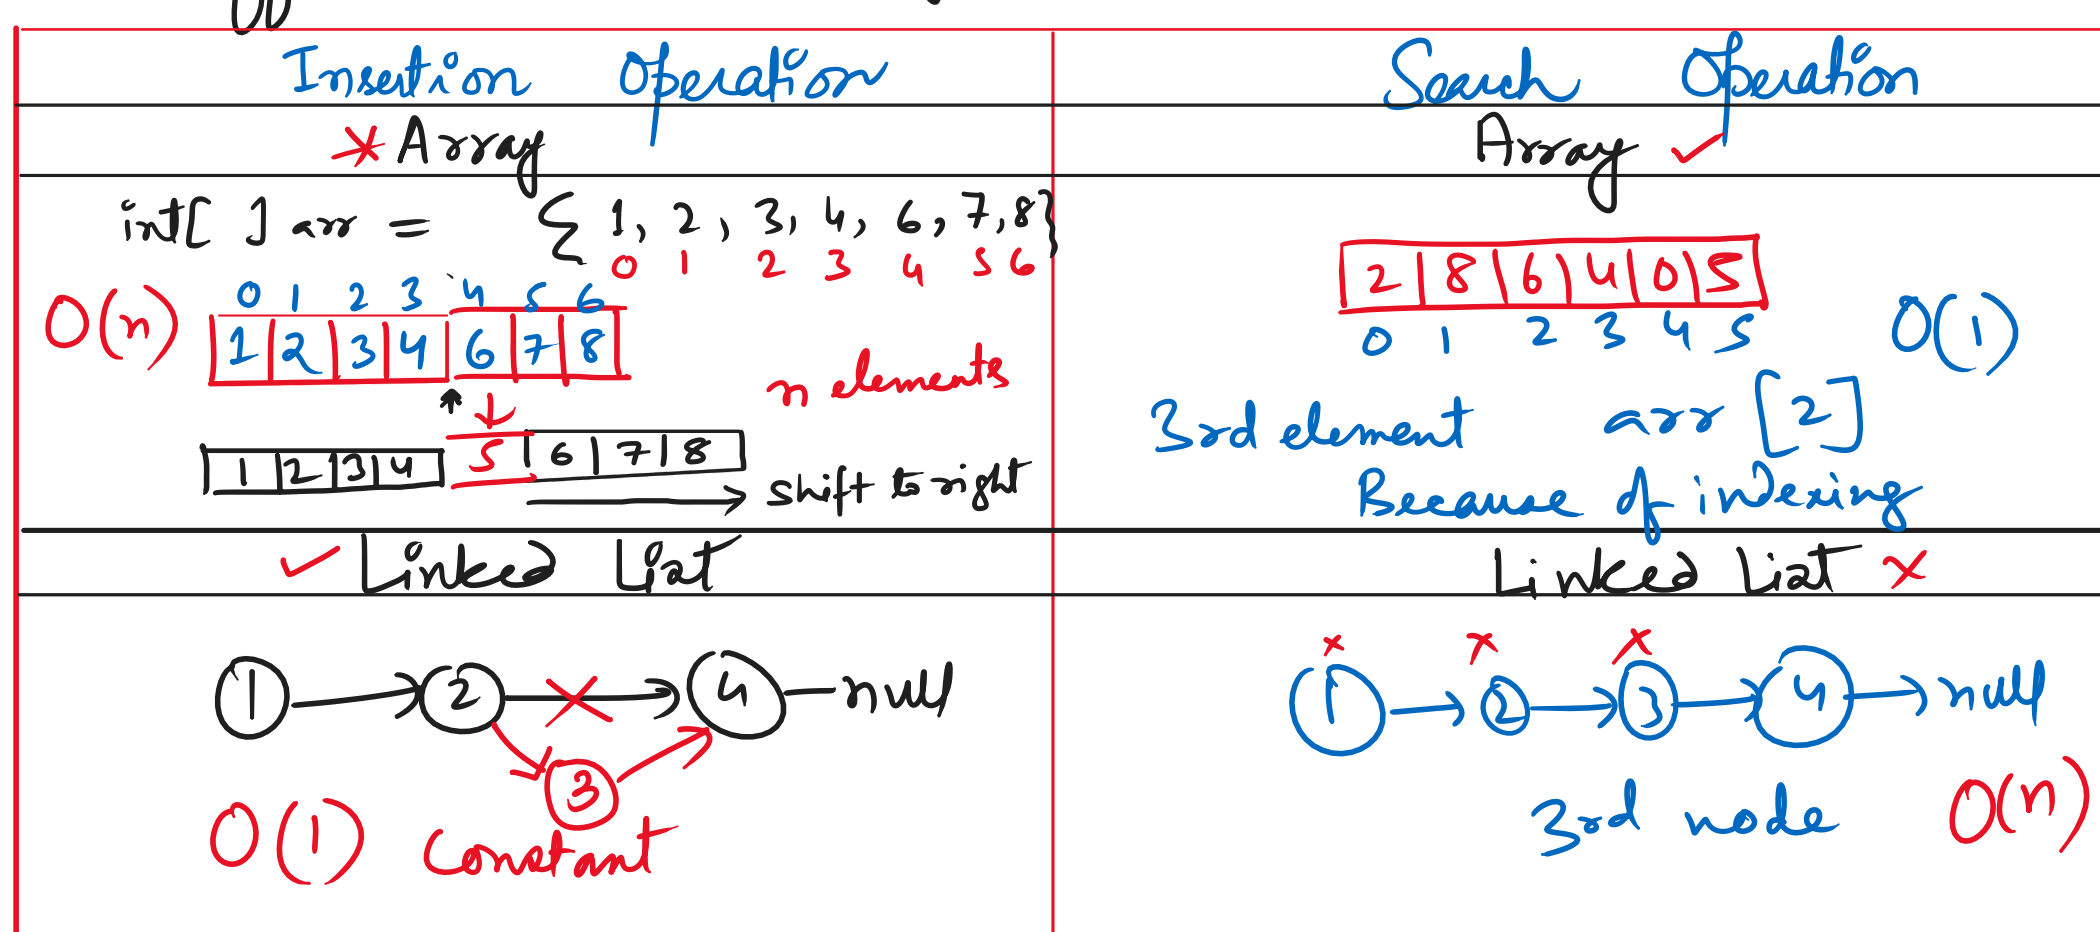 Insertion Operation
Array
int[ ] arr = { 1, 2, 3, 4, 6, 7, 8}
0 1 2 3 4 5 6
0 1 2 3 4 5 6
O(n)
1 2 3 4 6 7 8
n elements
1 2 3 4 5 6 7 8
shift to right
Linked List
1 2 4 null
3
O(1) Constant
Search Operation
Array
2 8 6 4 0 5
0 1 2 3 4 5
O(1)
3rd element arr [2]
Because of indexing
Linked List
1 2 3 4 null
3rd node O(n)